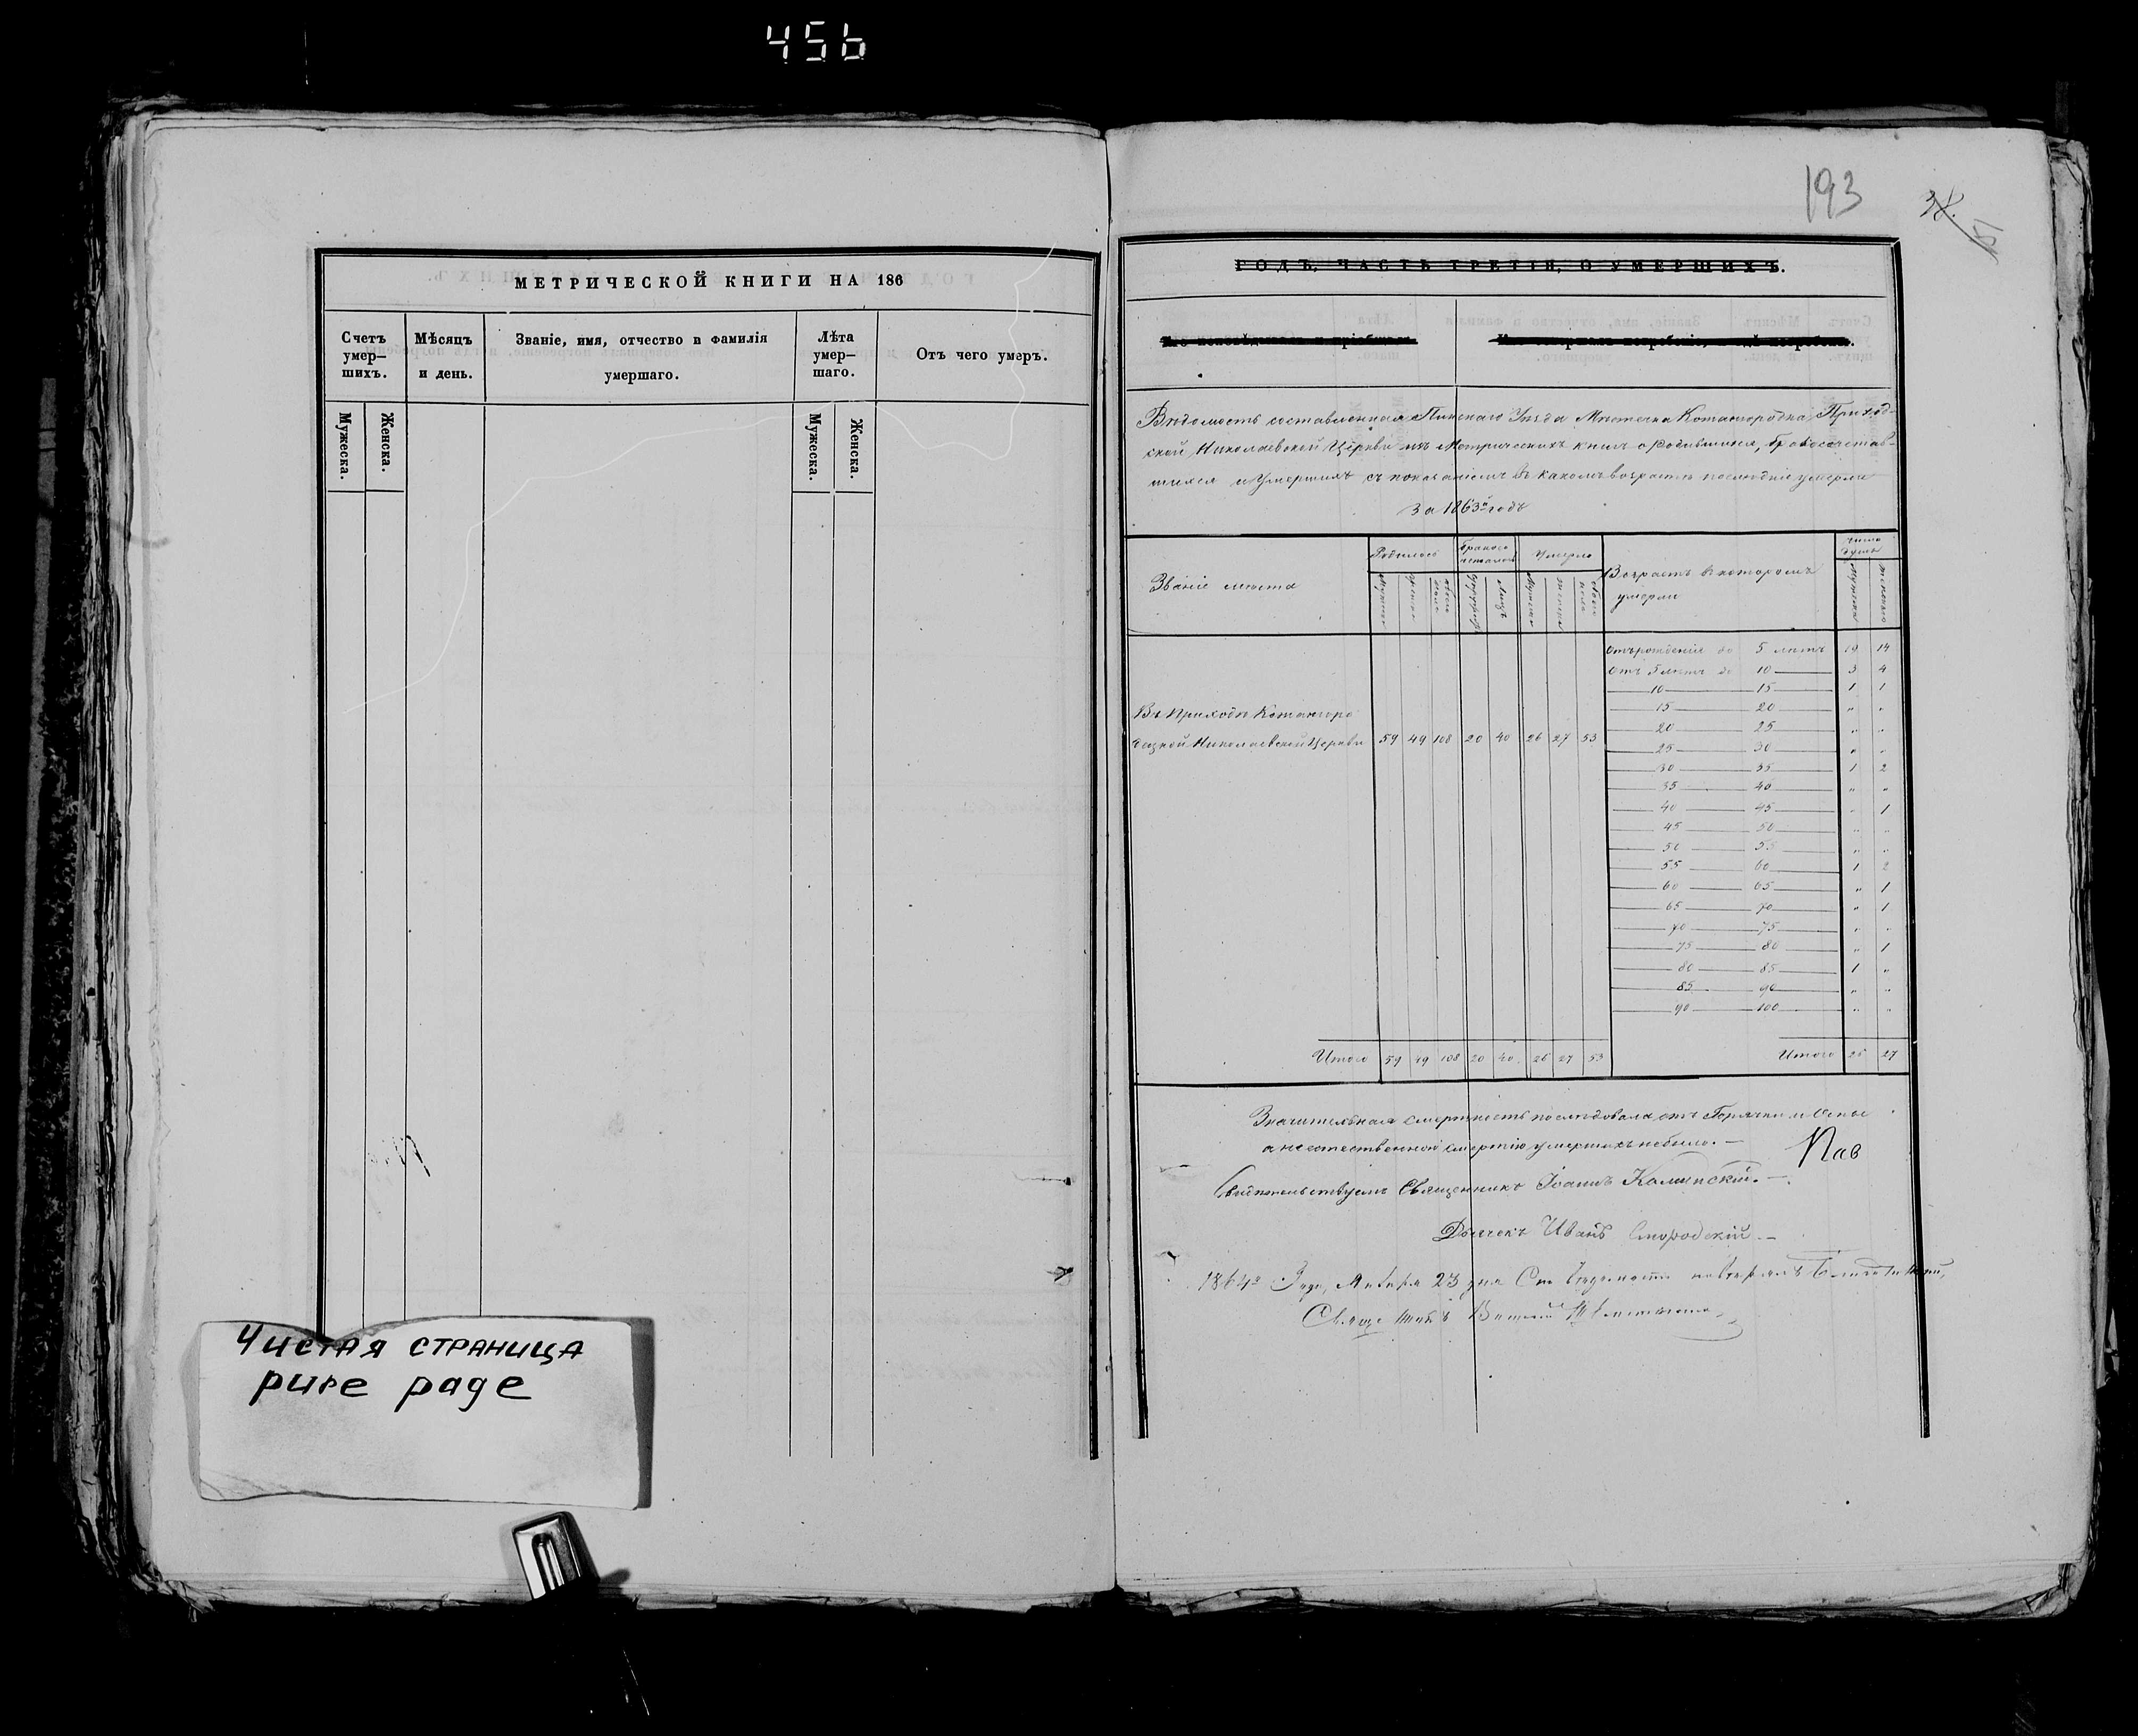 456
МЕТРИЧЕСКОЙ КНИГИ НА 186
Счетъ умер—шихъ.
Мѣсяцъ и день.
Званіе, имя, отчество и фамилія умершаго.
Лѣта умер—шаго.
Отъ чего умеръ.
Мужеска.
Женска.
Мужеска.
Женска.
Чистая страница
pure page
193
ГОДЪ, ЧАСТЬ ТРЕТІЯ, О УМЕРШИХЪ.
Вѣдомость составленная Пинскаго Уѣзда Мѣстечка Кожангородка Приход-
ской Николаевской Церкви изъ Метрическихъ книгъ о Родившихся, бракосочетав-
шихся и Умершихъ съ показаніемъ въ какомъ возрастѣ послѣдніе умерли
За 1863й годъ
Званіе мѣста
Родилось
Умерло
Возрастъ въ которомъ умерли
Число душъ
Отъ рожденія до 5 лѣтъ 19 14
Отъ 5 лѣтъ до 10 3 4
10 15 1 1
15 20 " "
20 25 " "
25 30 " "
30 35 1 2
35 40 " "
40 45 " 1
45 50 " "
50 55 " "
55 60 1 2
60 65 " 1
65 70 " 1
70 75 " "
75 80 " 1
80 85 1 "
85 90 " "
90 100 " "
Въ Приходѣ Кожангоро
децкой Николаевской Церкви 59 49 108 20 40 26 27 53
Итого 59 49 108 20 40 26 27 53
Итого 26 27
Значительная смертность послѣдовала отъ Горячки и Оспы
а неестественной смертію умершихъ небыло.—
Пав
Священникъ Іоаннъ
Дьячекъ Иванъ Смородскій.—
1864го Года, Января 23 дня Сію вѣдомость